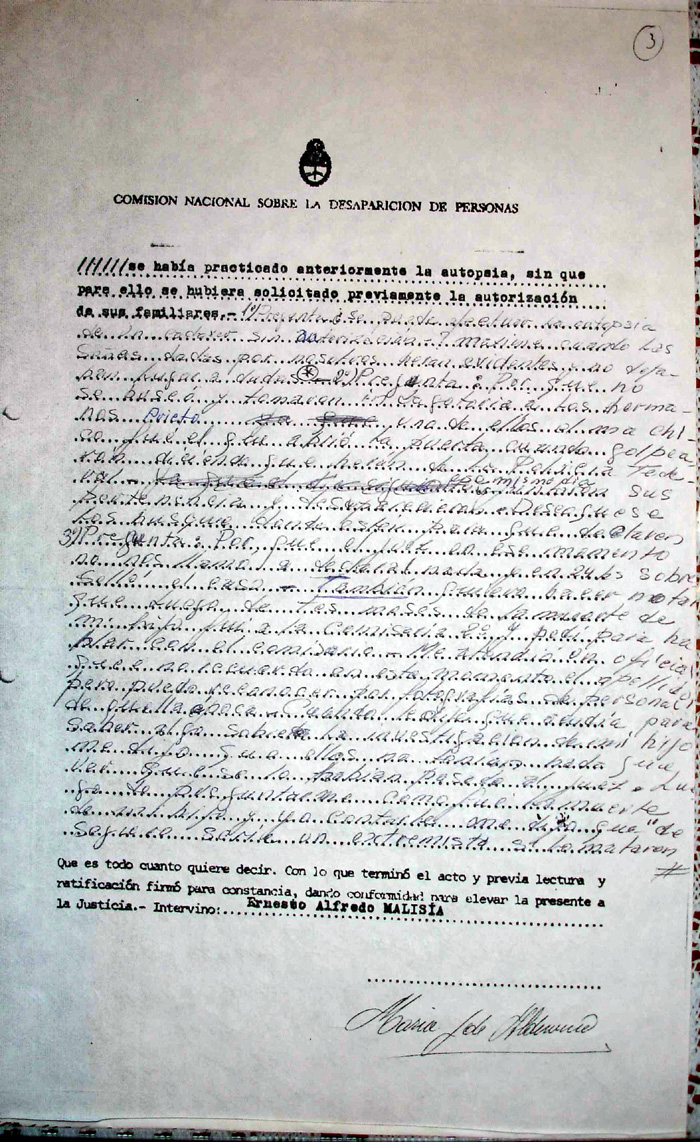 3
COMISION NACIONAL SOBRE LA DESAPARICION DE PERSONAS
//////se había practicado anteriormente la autopsia, sin que
para ello se hubiera solicitado previamente la autorización
de sus familiares.- 1) Pregunta: se puede efectuar la autopsia
de un cadaver sin autorizacion - Y maxime cuando las
señas dadas por nosotros heran evidentes y no deja-
ban lugar a dudas 2) Pregunta: Por que no
se busco y tomaron a las herma-
nas Prieto una de ellos al ma
que fué el que abrió la puerta cuando golpea
ron diciendo que herán de la Policia Fede
ral - ese mismo dia sus
pertenencia y desaparecieron -
los busque donde estan para que declaren
3) Pregunta: Por que el juez en ese momento
no nos llamó a declarar nada y en 24 hs sobre
selló el caso - También quiero hacer notar
que luego de tes meses de la muerte de
mi hijo fui a la Comisaria 23 y pedi para ha
blar con el comisario - Me atendió un oficial
que no recuerdo en este momento el apellido
pero puedo reconocer por fotografías de personal
de quella epoca - Cuando le dije que acudía para
saber algo sobre la investigacion de mi hijo
me dijo que ellos no tenian nada que
ver que se lo habian pasado al juez - Lue
go lo preguntarme como fue la muerte
de mi hijo y yo contarle me dijo que "de
seguro seria un extremista si lo mataron
#
Que es todo cuanto quiere decir. Con lo que terminó el acto y previa lectura y
ratificación firmó para constancia, dando conformidad para elevar la presente a
la Justicia.- Intervino: Ernesto Alfredo MALISIA
Maria J de